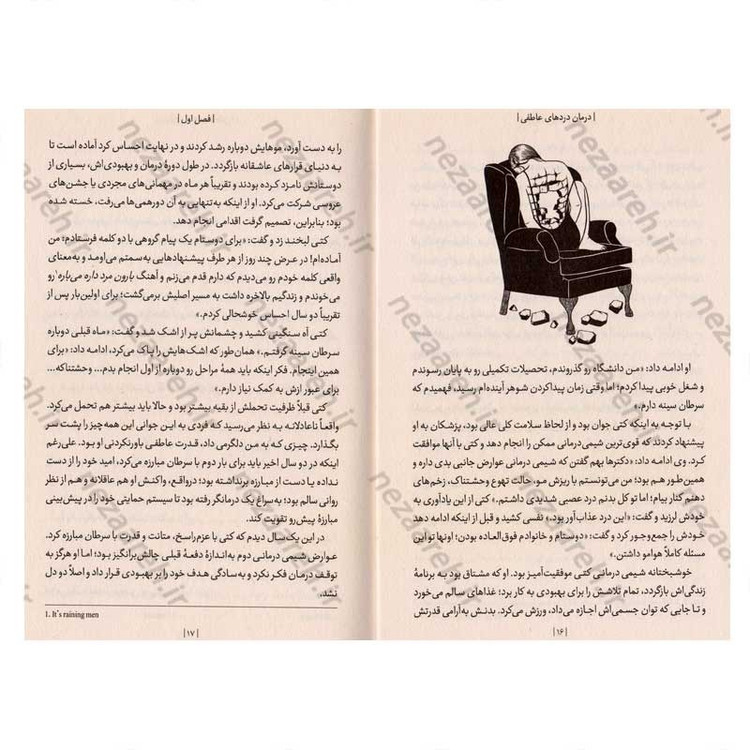 | درمان دردهای عاطفی |
او ادامه داد: «من دانشگاه رو گذروندم، تحصیلات تکمیلی رو به پایان رسوندم
و شغل خوبی پیدا کردم؛ اما وقتی زمان پیدا‌کردن شوهر آینده‌ام رسید، فهمیدم که
سرطان سینه دارم.»
با توجه به اینکه کتی جوان بود و از لحاظ سلامت کلی عالی بود، پزشکان به او
پیشنهاد کردند که قوی‌ترین شیمی‌درمانی ممکن را انجام دهد و کتی با آنها موافقت
کرد. وی ادامه داد: «دکترها بهم گفتن که شیمی‌درمانی عوارض جانبی بدی داره و
همین‌طور هم بود؛ من می‌تونستم با ریزش مو، حالت تهوع وحشتناک، زخم‌های
دهنم کنار بیام؛ اما تو کل بدنم درد عصبی شدیدی داشتم.» کتی از این یادآوری به
خودش لرزید و گفت: «این درد عذاب‌آور بود.» نفسی کشید و قبل از اینکه ادامه دهد
خودش را جمع‌وجور کرد و گفت: «دوستام و خانوادم فوق‌العاده بودن؛ اونها تو این
مسئله کاملاً هوامو داشتن.»
خوشبختانه شیمی‌درمانی کتی موفقیت‌آمیز بود. او که مشتاق بود به برنامهٔ
زندگی‌اش بازگردد، تمام تلاشش را برای بهبودی به کار برد؛ غذاهای سالم می‌خورد
و تا جایی که توان جسمی‌اش اجازه می‌داد، ورزش می‌کرد. بدنش به‌آرامی قدرتش
| ۱۶ |
| فصل اول |
را به دست آورد، موهایش دوباره رشد کردند و در نهایت احساس کرد آماده است تا
به دنیای قرارهای عاشقانه بازگردد. در طول دورهٔ درمان و بهبودی‌اش، بسیاری از
دوستانش نامزد کرده بودند و تقریباً هر ماه در مهمانی‌های مجردی یا جشن‌های
عروسی شرکت می‌کرد. او از اینکه به‌تنهایی به آن دورهمی‌ها می‌رفت، خسته شده
بود؛ بنابراین، تصمیم گرفت اقدامی انجام دهد.
کتی لبخند زد و گفت: «برای دوستام یک پیام گروهی با دو کلمه فرستادم؛ من
آماده‌ام! در عرض چند روز از هر طرف پیشنهادهایی به‌سمتم می‌اومد و به‌معنای
واقعی کلمه خودم رو می‌دیدم که دارم قدم می‌زنم و آهنگ بارون مرد داره می‌باره¹ رو
می‌خوندم و زندگیم بالاخره داشت به مسیر اصلیش برمی‌گشت؛ برای اولین‌بار پس از
تقریباً دو سال احساس خوشحالی کردم.»
کتی آه سنگینی کشید و چشمانش پر از اشک شد و گفت: «ماه قبلی دوباره
سرطان سینه گرفتم.» همان‌طور که اشک‌هایش را پاک می‌کرد، ادامه داد: «برای
همین اینجام. فکر اینکه باید همهٔ مراحل رو دوباره از اول انجام بدم... وحشتناکه...
برای عبور ازش به کمک نیاز دارم.»
کتی قبلاً ظرفیت تحملش از بقیه بیشتر بود و حالا باید بیشتر هم تحمل می‌کرد.
واقعاً ناعادلانه به نظر می‌رسید که فردی به این جوانی این همه چیز را پشت سر
بگذارد. چیزی که به من دلگرمی داد، قدرت عاطفی باورنکردنی او بود. علی‌رغم
اینکه در دو سال اخیر باید برای بار دوم با سرطان مبارزه می‌کرد، امید خود را از دست
نداده یا دست از مبارزه برنداشته بود؛ درواقع، واکنش او هم عاقلانه و هم از نظر
روانی سالم بود؛ به‌سراغ یک درمانگر رفته بود تا سیستم حمایتی خود را در پیش‌بینی
مبارزهٔ پیش‌رو تقویت کند.
در این یک‌سال دیدم که کتی با عزم راسخ، متانت و قدرت با سرطان مبارزه کرد.
عوارض شیمی‌درمانی دوم به‌اندازهٔ دفعهٔ قبلی چالش‌برانگیز بود؛ اما او هرگز به
توقف درمان فکر نکرد و به‌سادگی هدف خود را بر بهبودی قرار داد و اصلاً دو دل
نشد.
1. It's raining men
| ۱۷ |
nezaareh.ir